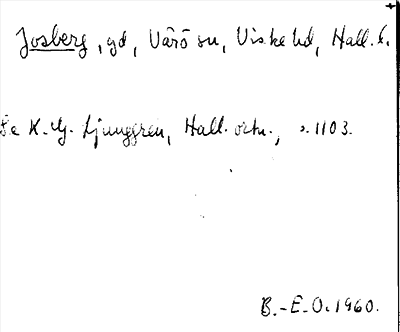 Josberg, gd, Värö sn, Viske hd, Hall. l.
Se K. G. Ljunggren, Hall. ortn., s. 1103.
B.-E. O. 1960.